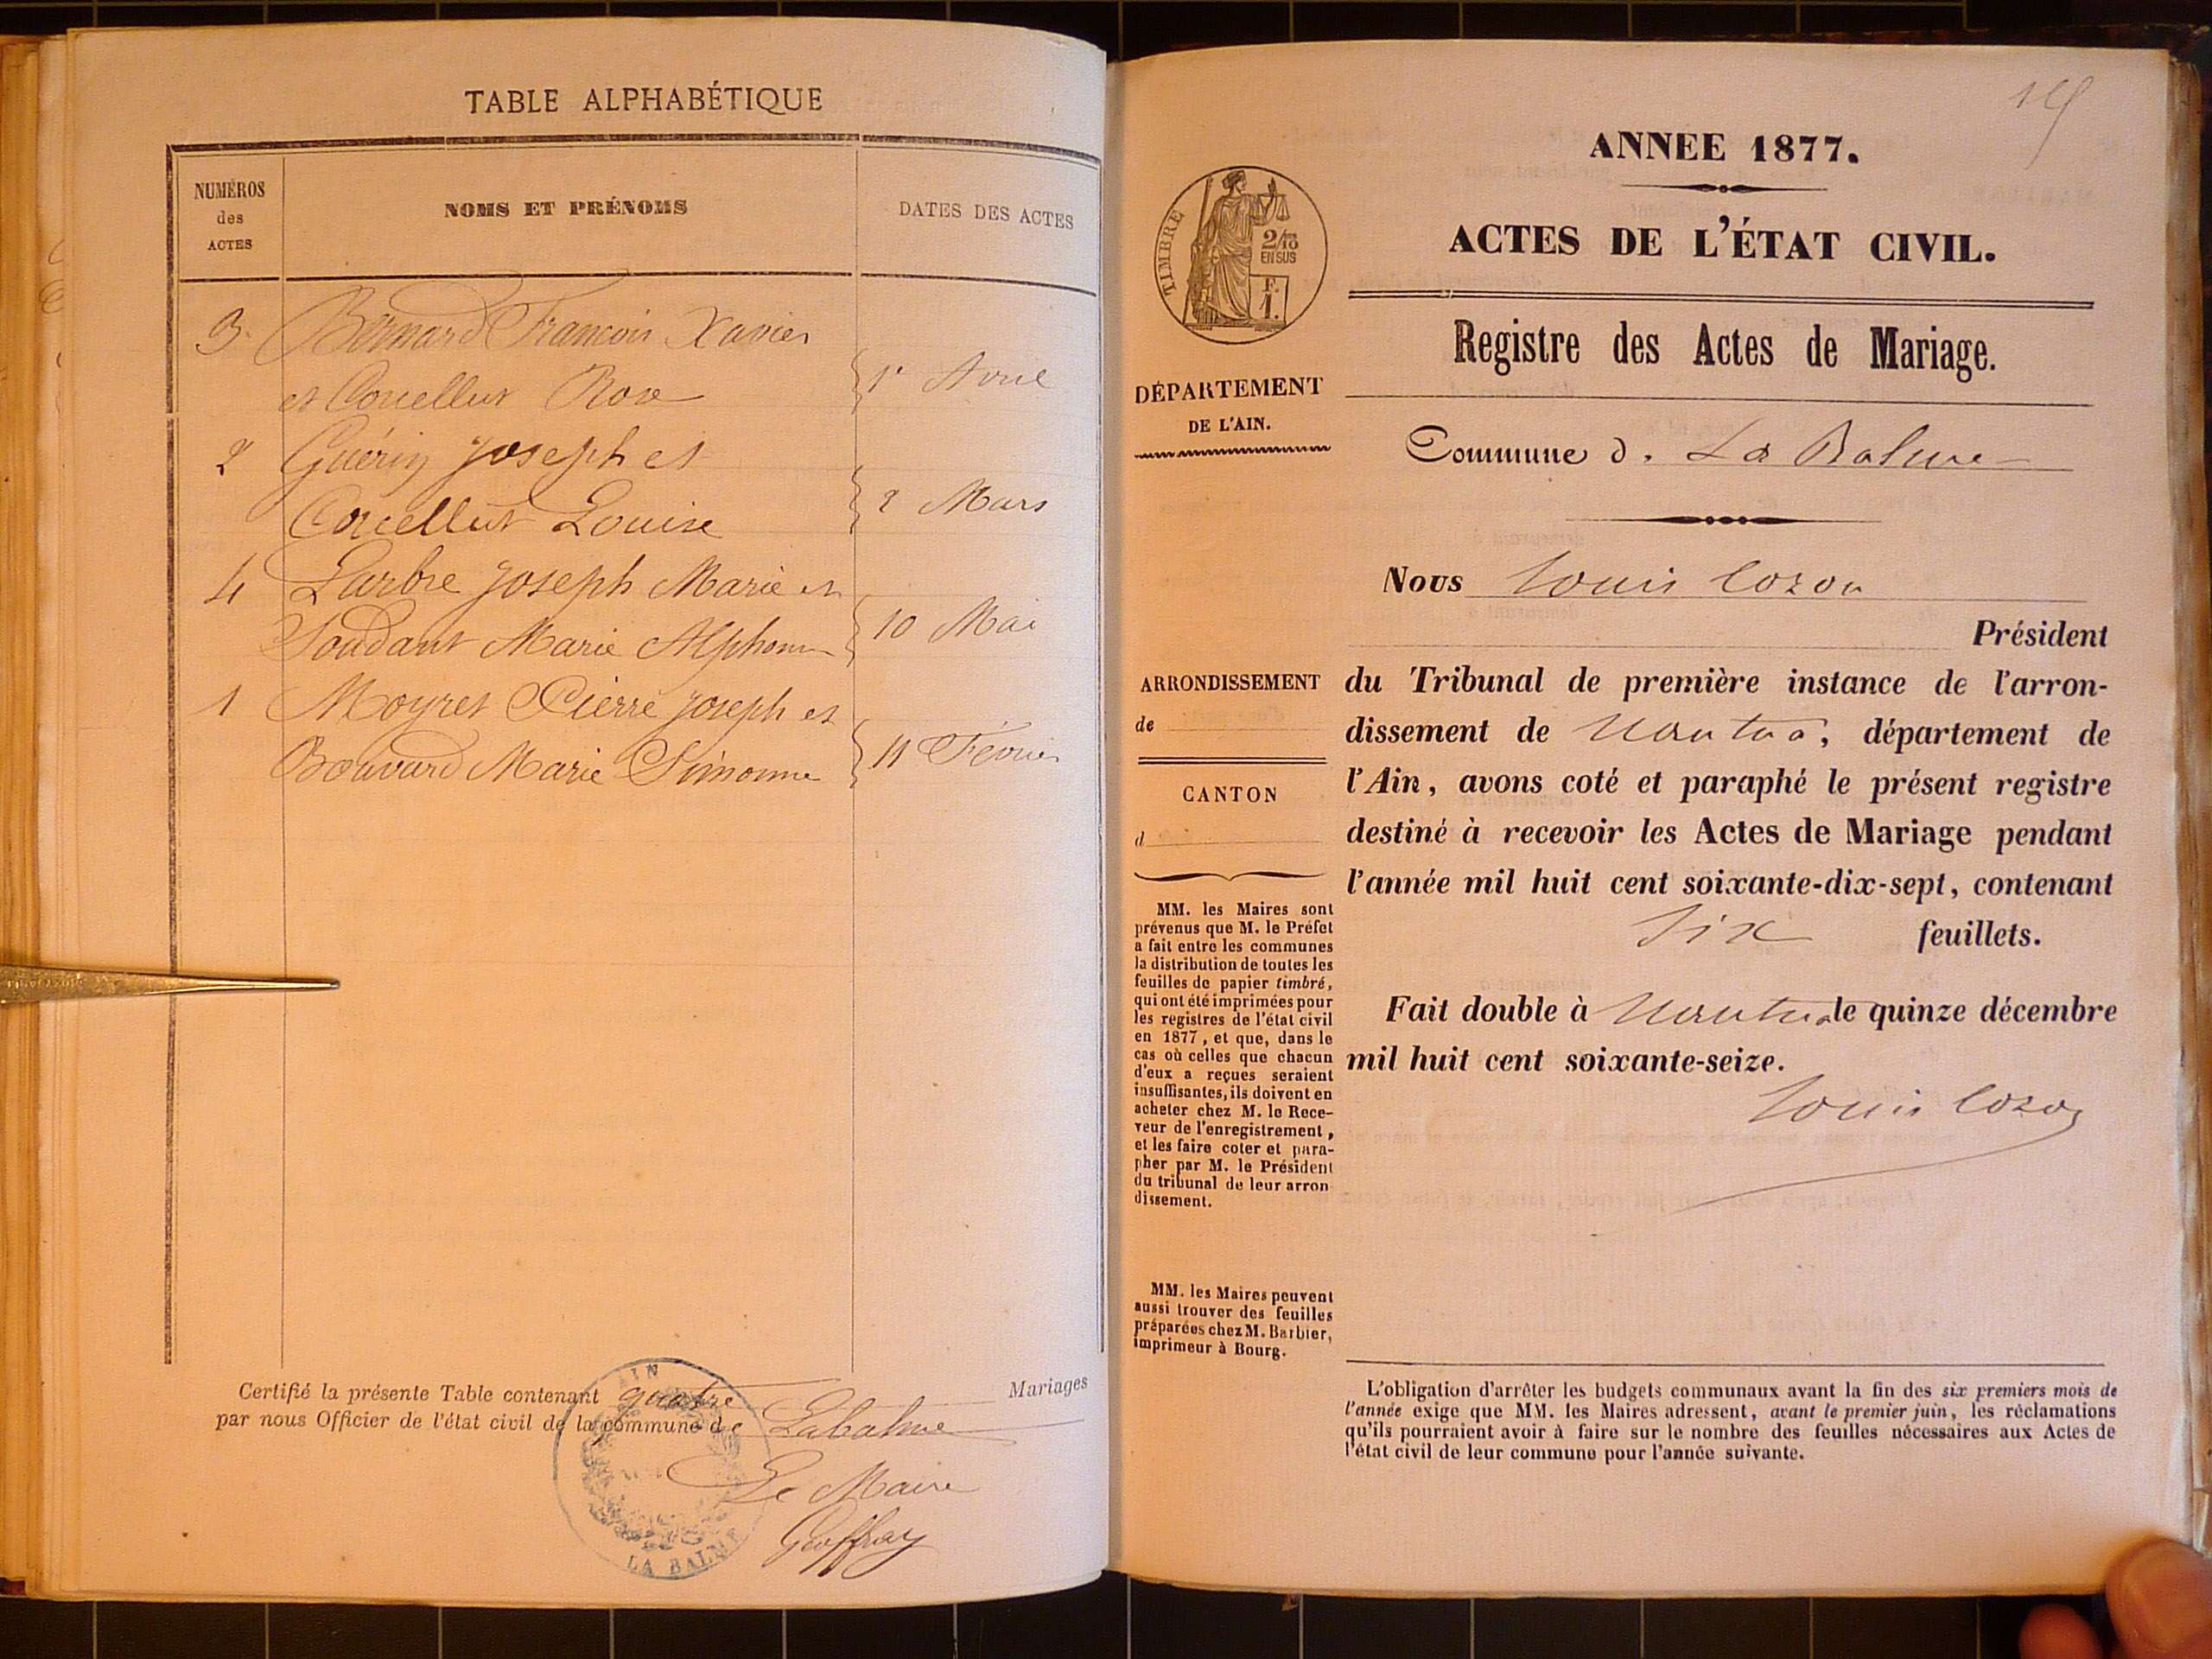 TABLE ALPHABÉTIQUE
NUMÉROS
des
ACTES
NOMS ET PRÉNOMS
DATES DES ACTES
3 Bernard François Xavier
et Corcellut Rose 1r Avril
2 Guérin Joseph et
Corcellut Louise 2 Mars
4 Larbre Joseph Marie et
Soudant Marie Alphonsine 10 Mai
1 Moyret Pierre Joseph et
Bouvard Marie Simonne 11 Février
Certifié la présente Table contenant quatre Mariages
par nous Officier de l'état civil de la commune de Labalme
Le Maire
Geoffray
AIN
LA BALME
ANNEE 1877.
ACTES DE L'ÉTAT CIVIL.
TIMBRE
2/10
EN SUS
F.
1.
Registre des Actes de Mariage.
DÉPARTEMENT
DE L'AIN.
Commune d. La Balme
Nous Louis Cozon
Président
ARRONDISSEMENT
de
CANTON
d
du Tribunal de première instance de l'arron-
dissement de Nantua, département de
l'Ain, avons coté et paraphé le présent registre
destiné à recevoir les Actes de Mariage pendant
l'année mil huit cent soixante-dix-sept, contenant
Six feuillets.
Fait double à Nantua le quinze décembre
mil huit cent soixante-seize.
Louis Cozon
MM. les Maires sont
prévenus que M. le Préfet
a fait entre les communes
la distribution de toutes les
feuilles de papier timbré,
qui ont été imprimées pour
les registres de l'état civil
en 1877, et que, dans le
cas où celles que chacun
d'eux a reçues seraient
insuffisantes, ils doivent en
acheter chez M. le Rece-
veur de l'enregistrement,
et les faire coter et para-
pher par M. le Président
du tribunal de leur arron
dissement.
MM. les Maires peuvent
aussi trouver des feuilles
préparées chez M. Barbier,
imprimeur à Bourg.
L'obligation d'arrêter les budgets communaux avant la fin des six premiers mois de
l'année exige que MM. les Maires adressent, avant le premier juin, les réclamations
qu'ils pourraient avoir à faire sur le nombre des feuilles nécessaires aux Actes de
l'état civil de leur commune pour l'année suivante.